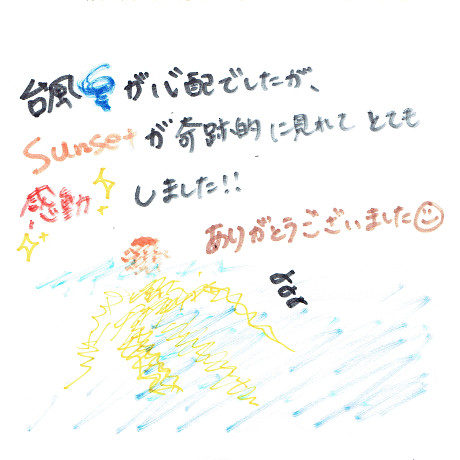 台風🌀が心配でしたが、
Sunsetが奇跡的に見れてとても
感動しました!!
ありがとうございました☺